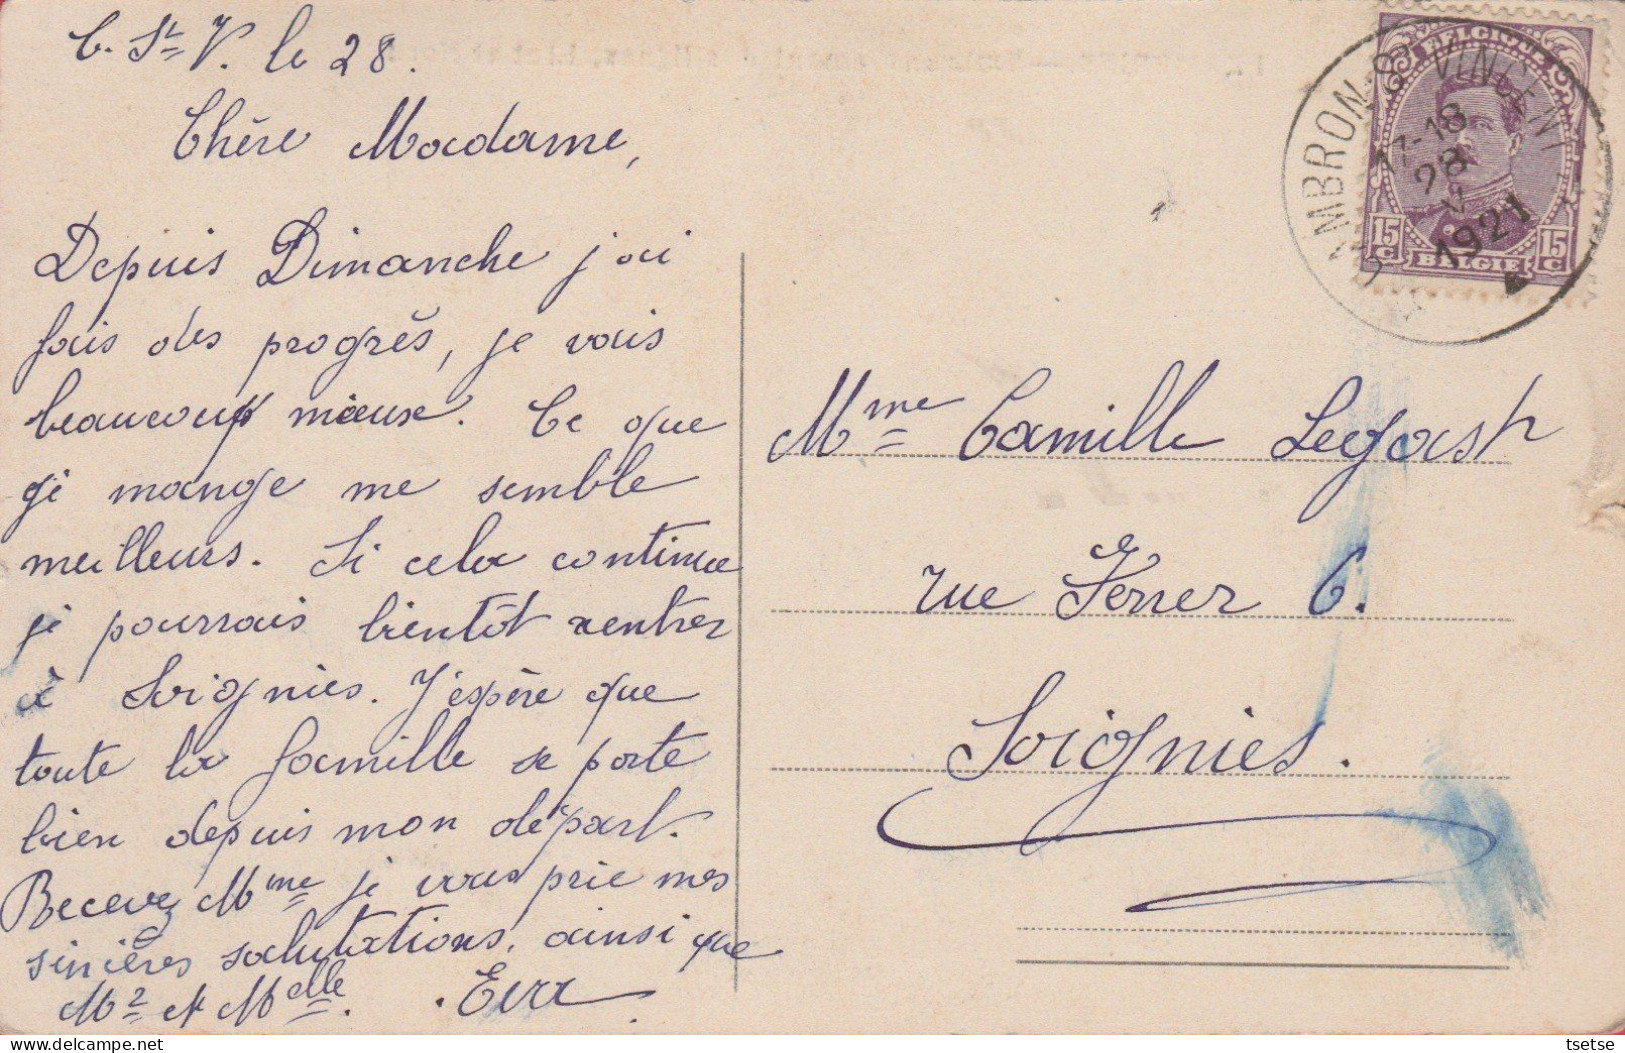 C. St V. le 28.
Chère Madame,
Depuis Dimanche j'ai
fais des progrès, je vais
beaucoup mieuse. Ce que
je mange me semble
meilleurs. Si cela continue
je pourrais bientôt rentrer
à Soignies. J'espère que
toute la famille se porte
bien depuis mon départ.
Recevez Mme je vous prie mes
sincères salutations, ainsi que
Mr et Melle. Eva
BELGIQUE
15 C
15 C
BELGIE
CAMBRON-ST VINCENT
17-18
28
V
1921
Mme Camille Legast
rue Ferrer 6.
Soignies.
tsetse